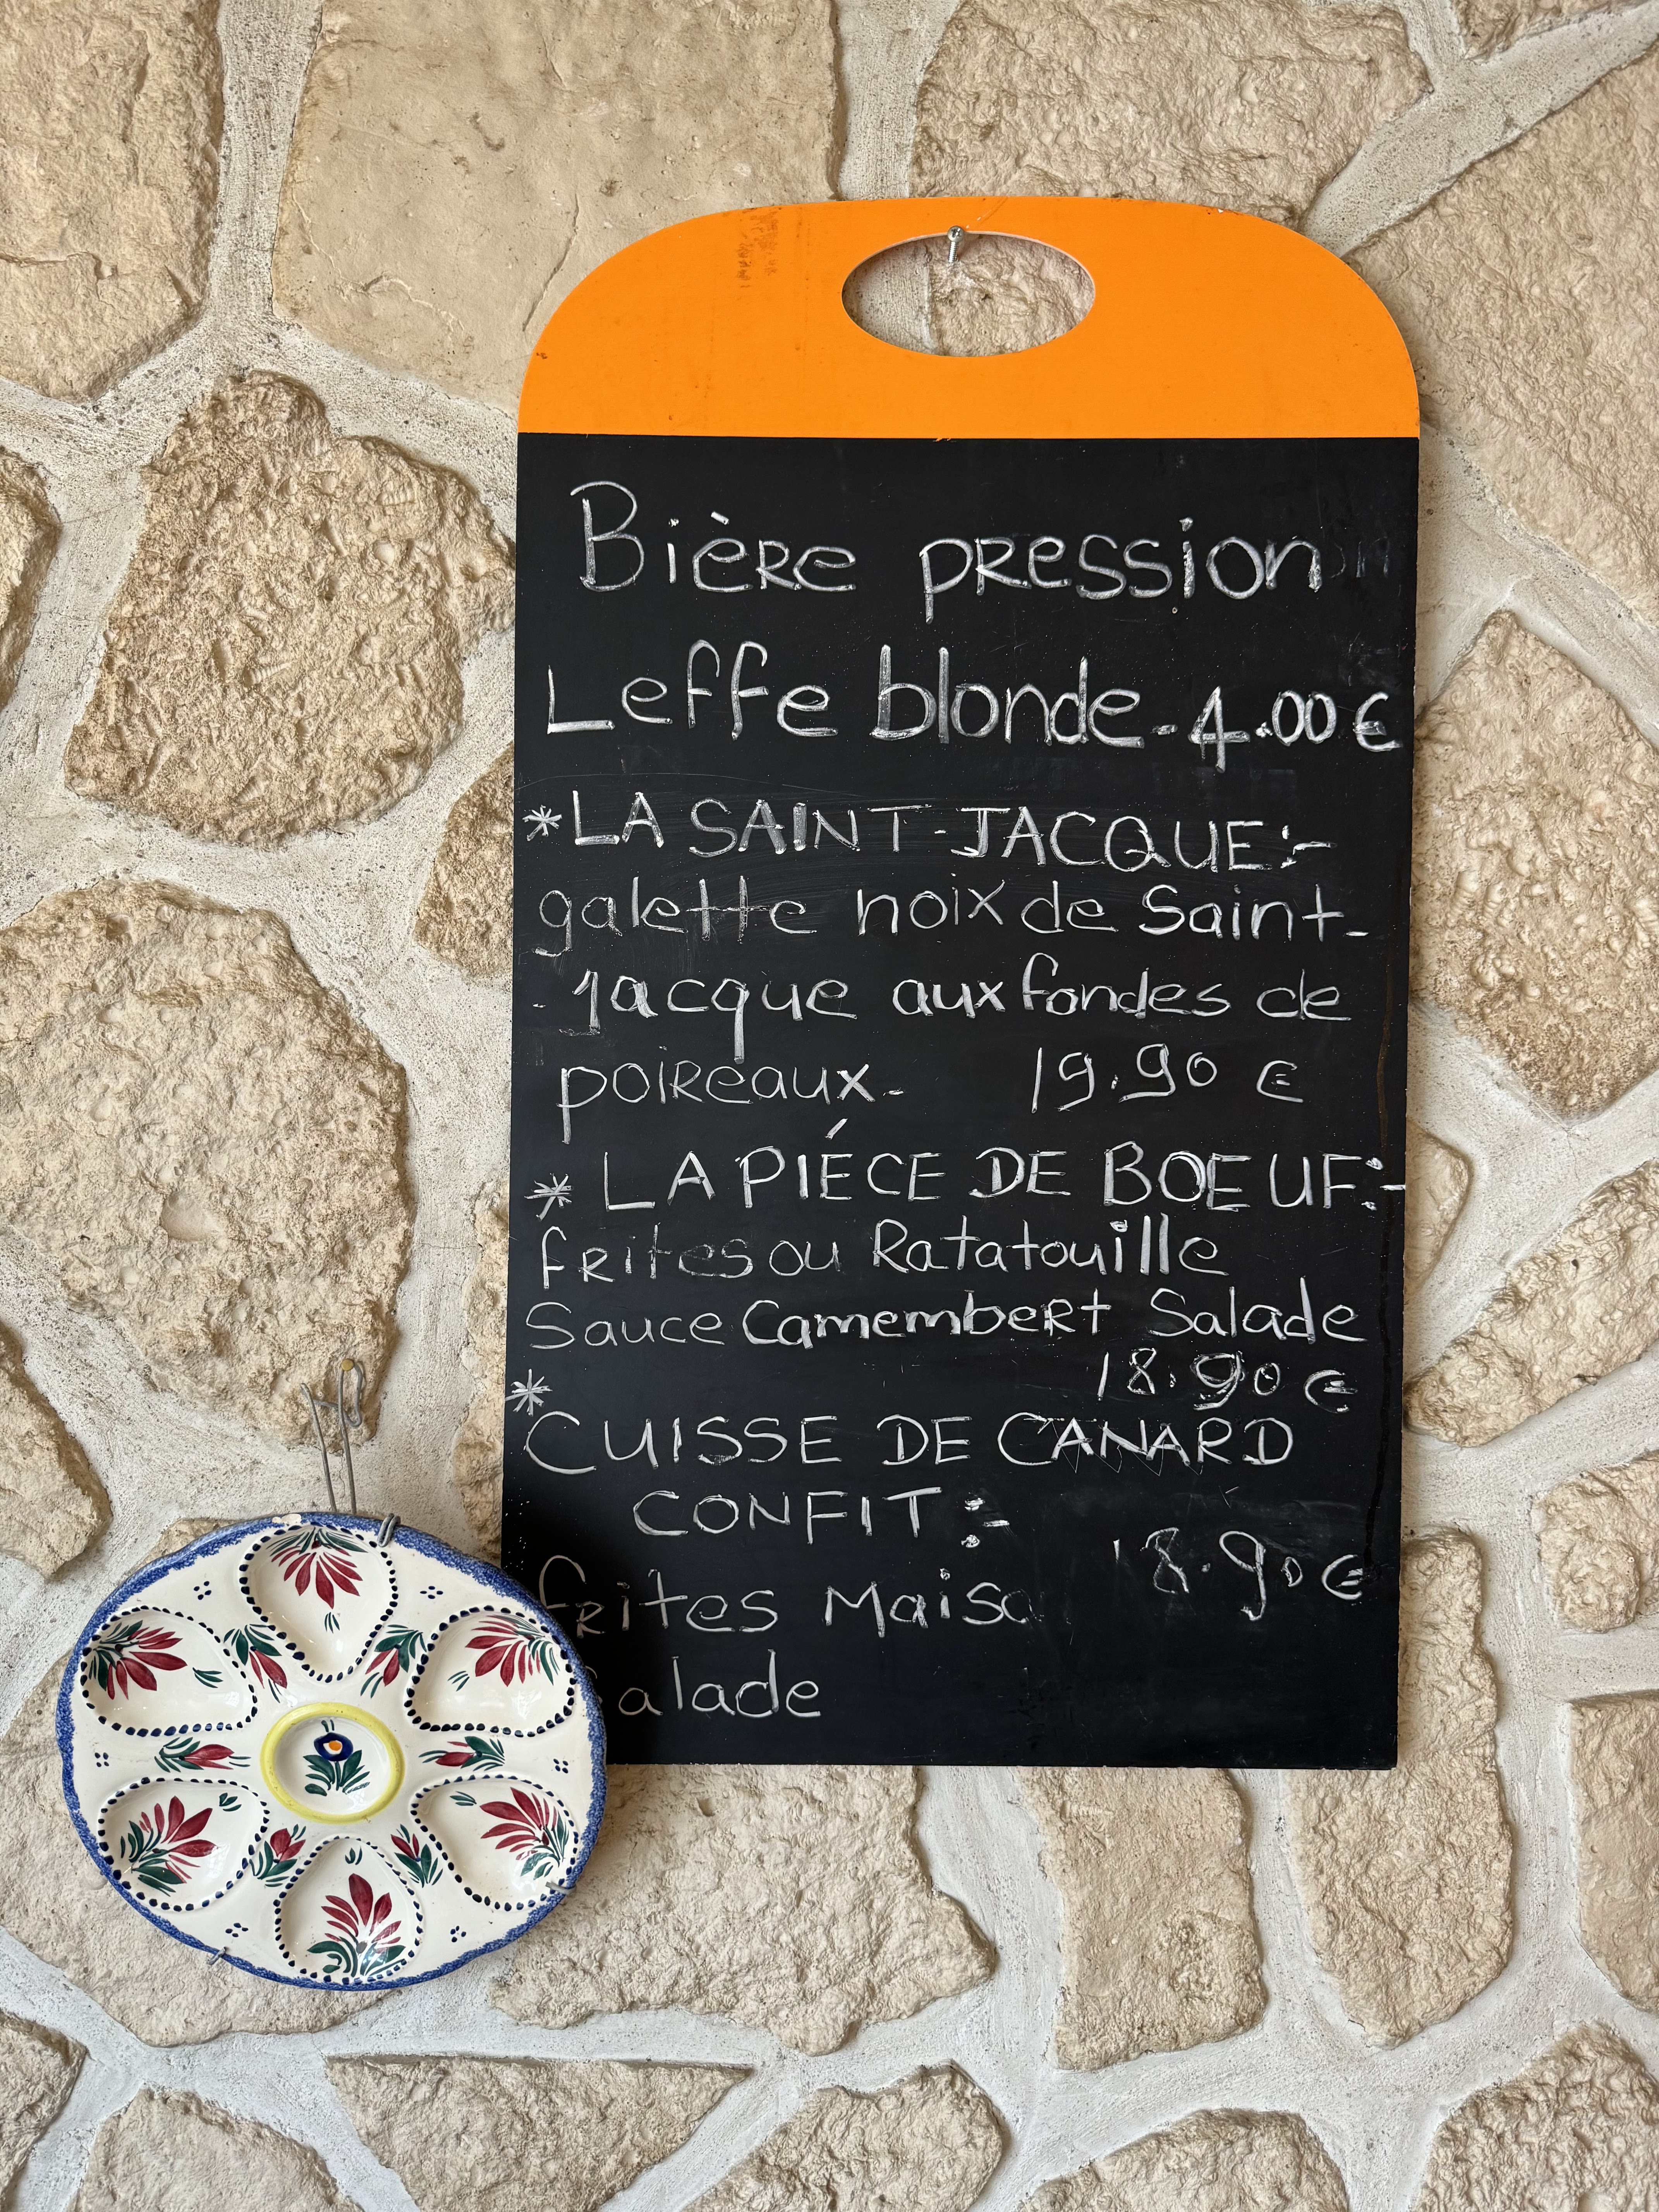 Bière pression
Leffe blonde-4.00€
*LA SAINT-JACQUE:-
galette noix de Saint-
-Jacque aux fondes de
poireaux- 19.90 €
* LA PIÉCE DE BOEUF:-
frites ou Ratatouille
Sauce Camembert Salade
18.90 €
*
CUISSE DE CANARD
CONFIT:-
18.90€
frites Maiso
alade